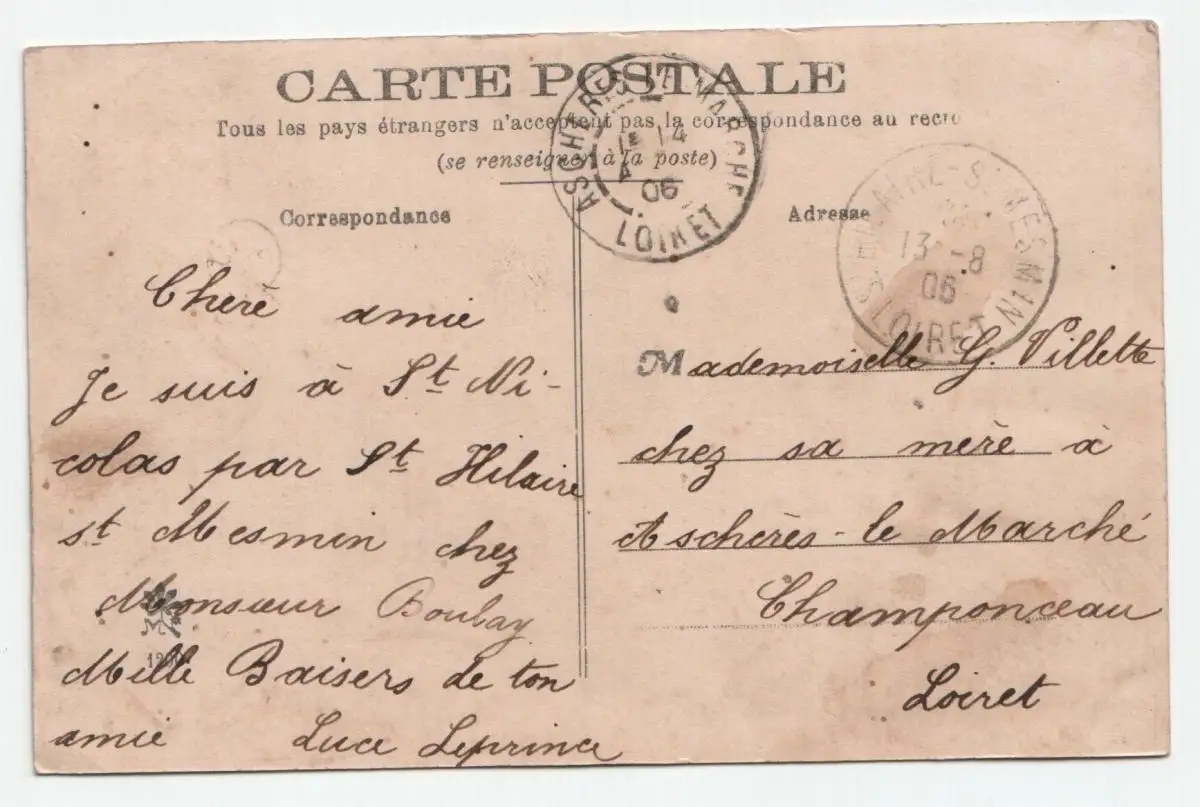 CARTE POSTALE
Tous les pays étrangers n'acceptent pas la correspondance au recto
(se renseigner à la poste)
ASCHERES-LE-MARCHE
14
06
LOIRET
ST HILAIRE-ST MESMIN
13 -8
06
LOIRET
Correspondance
Cherè amie
Je suis à St Ni-
colas par St Hilaire
st Mesmin chez
Monsieur Boulay
Mille Baisers de ton
amie Luce Leprince
M
1200
Adresse
Mademoiselle G. Villette
chez sa merè à
Aschères-le Marché
Champonceau
Loiret